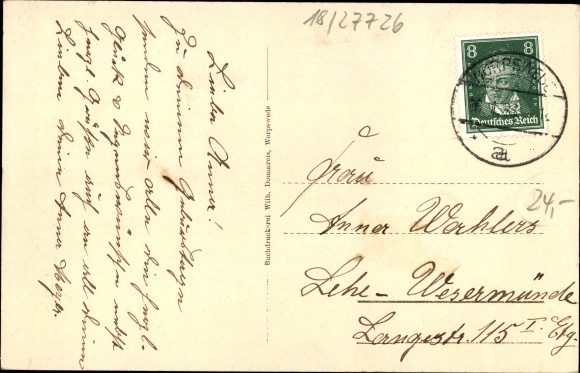 18/27726
Liebe Anna!
Zu deinem Geburtstage
senden wir alle die herzl.
Glück & Segenswünsche nebst
herzl. Grüßen auch an all deine
Lieben deine Anna Meyer.
Buchdruckerei Wilh. Dommreis, Worpswede
8 8
Deutsches Reich
WORPSWEDE
a
24,-
Frau
Anna Wahlers
Lehe-Wesermünde
Langestr. 115 I. Etg.